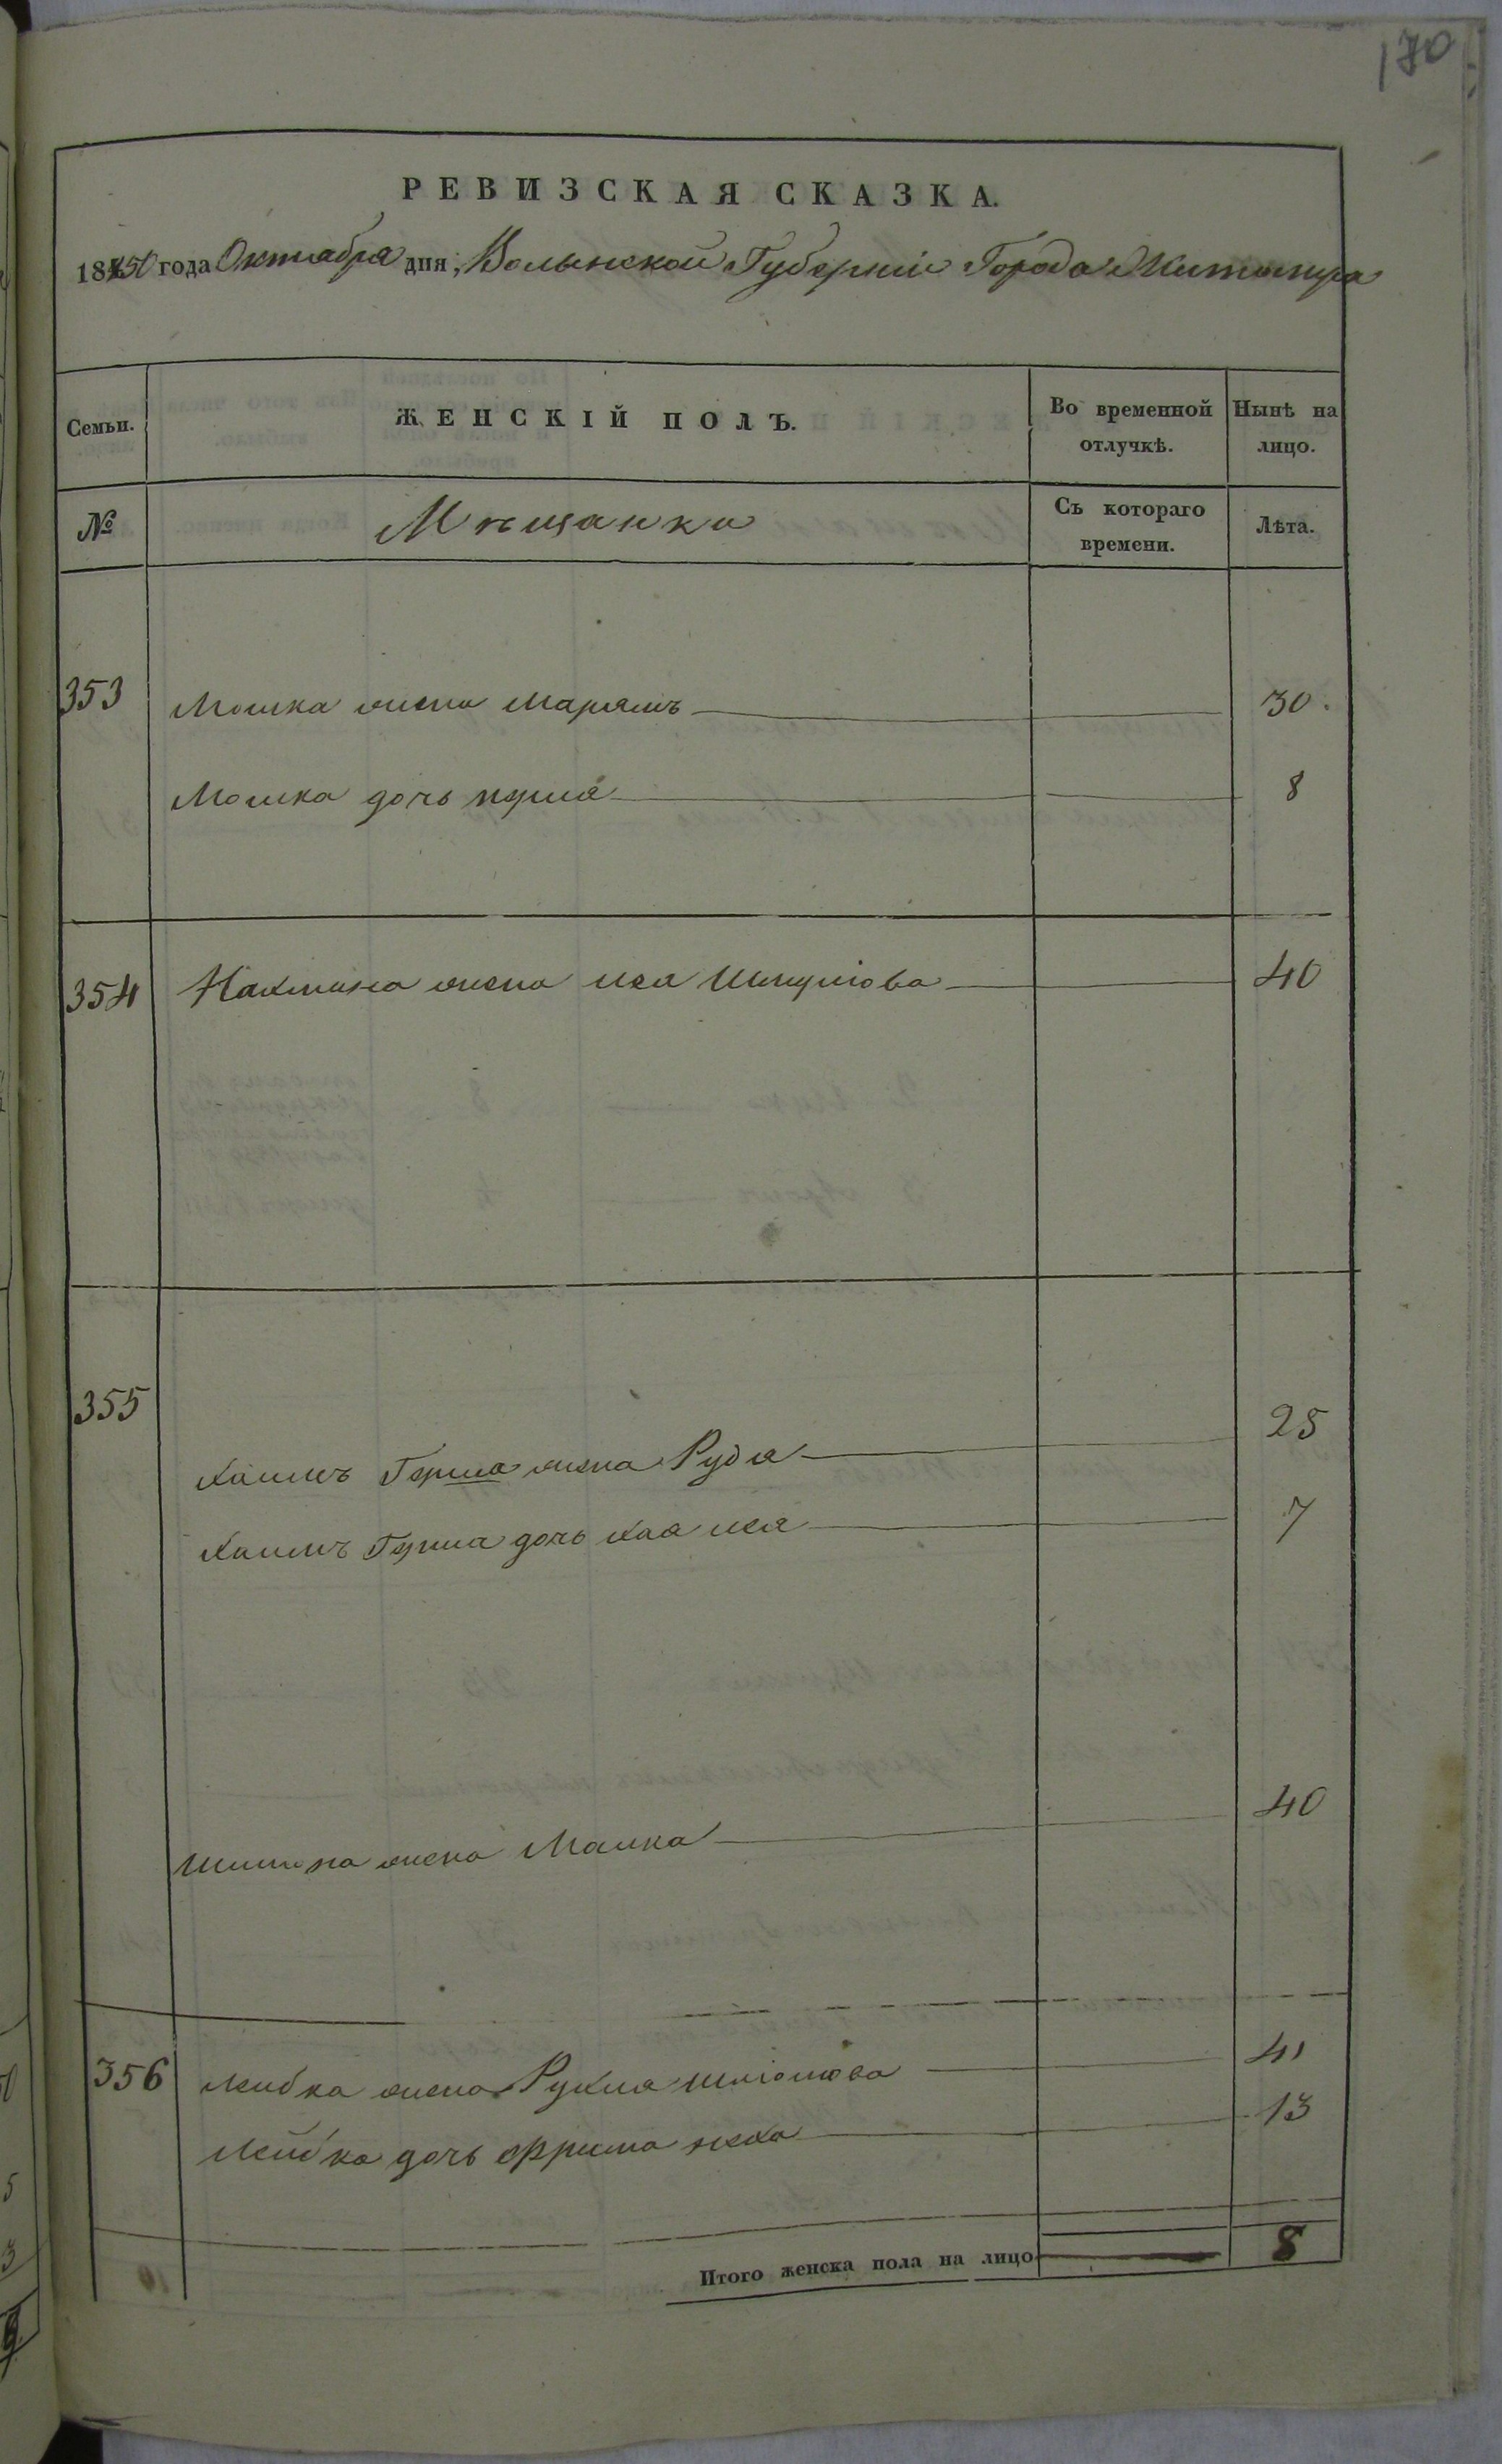 170
РЕВИЗСКАЯ СКАЗКА.
1850 года Октября дня, Волынской Губерніи Города Житомира
Семьи.
ЖЕНСКІЙ ПОЛЪ.
Во временной отлучкѣ.
Нынѣ на лицо.
№
Мѣщанки
Съ котораго времени.
Лѣта.
353
Мошка жена Марямъ 30.
Мошка дочь 8
354 Нахмана жена Ися 40
355
Хаимъ Герша жена Рудя 25
Хаимъ Герша дочь Хая Ися 7
жена Малка 40
356 Лейбка жена Рухля 41
Лейбка дочь Фрима 13
Итого женска пола на лицо 8